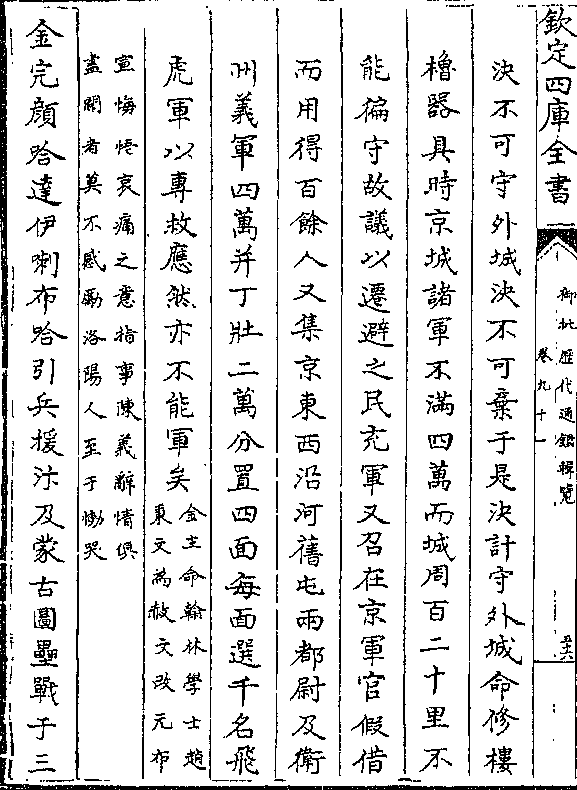 欽定四庫全書
御批歷代通鑑輯覽
卷九十一
決不可守外城決不可棄于是決計守外城命修樓
櫓器具時京城諸軍不滿四萬而城周百二十里不
能徧守故議以遷避之民充軍又召在京軍官假借
而用得百餘人又集京東西沿河舊屯兩都尉及衛
州義軍四萬并丁壯二萬分置四面每面選千名飛
虎軍以專救應然亦不能軍矣
金主命翰林學士趙
秉文為赦文改元布
宣悔悟哀痛之意指事陳義辭情俱
盡聞者莫不感勵洛陽人至于慟哭
金完顔哈達伊喇布哈引兵援汴及蒙古圖壘戰于三